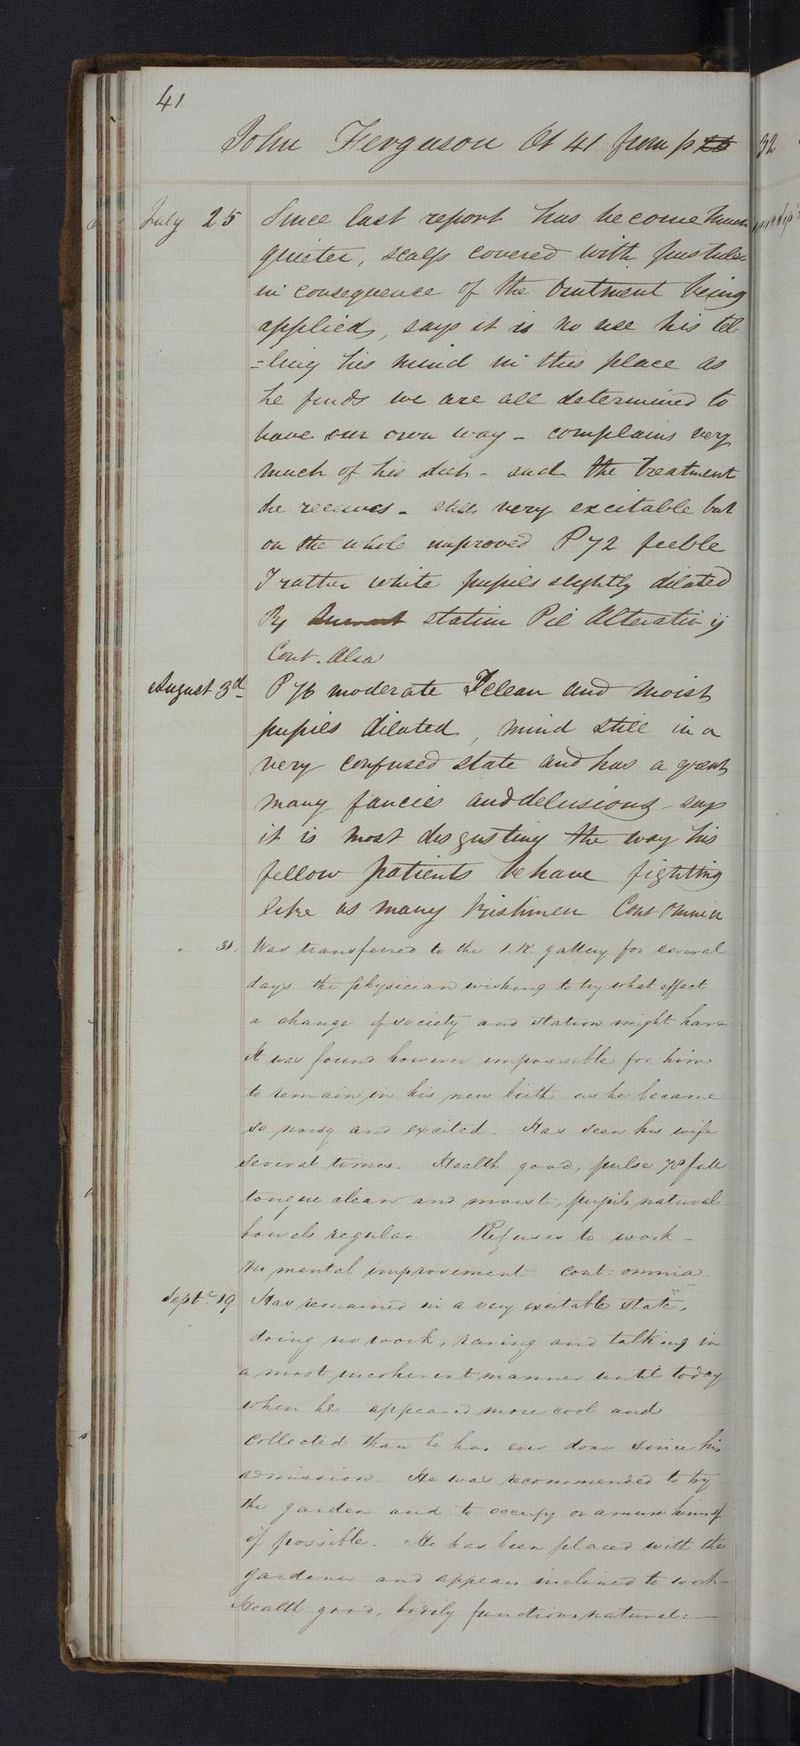 41
John Ferguson Æt 41 from p 32
July 25 Since last report has become much
quieter, scalp covered with pustules
in consequence of the Ointment being
applied, says it is no use his tel
=ling his mind in this place as
he finds we are all determined to
have our own way - complains very
much of his diet - and the treatment
he receives - still very excitable but
on the whole improved P 72 feeble
T rather white pupils slightly dilated
Rx statim Pil Alterativ ij
Cont. Alia
August 3d P 76 moderate T clean and moist
pupils dilated, mind still in a
very confused state and has a great
many fancies and delusions - says
it is most disgusting the way his
fellow patients behave fighting
like as many Irishmen Cont Omnia
" 31. Was transferred to the gallery for several
days the physician wishing to try what effect
a change of society and station might have
It was found however impossible for him
to remain in his new birth as he became
so noisy and excited. Has seen his wife
several times. Health good, pulse 78 full
tongue clean and moist, pupils natural
bowels regular. Refuses to work -
No mental improvement cont. omnia.
Sept. 19 Has remained in a very excitable state,
doing no work, raving and talking in
a most incoherent manner until today
when he appeared more cool and
collected than he has ever done since his
admission. He was recommended to try
the garden and to occupy or amuse himself
if possible. He has been placed with the
gardener and appears inclined to work -
Health good, bodily functions natural: -